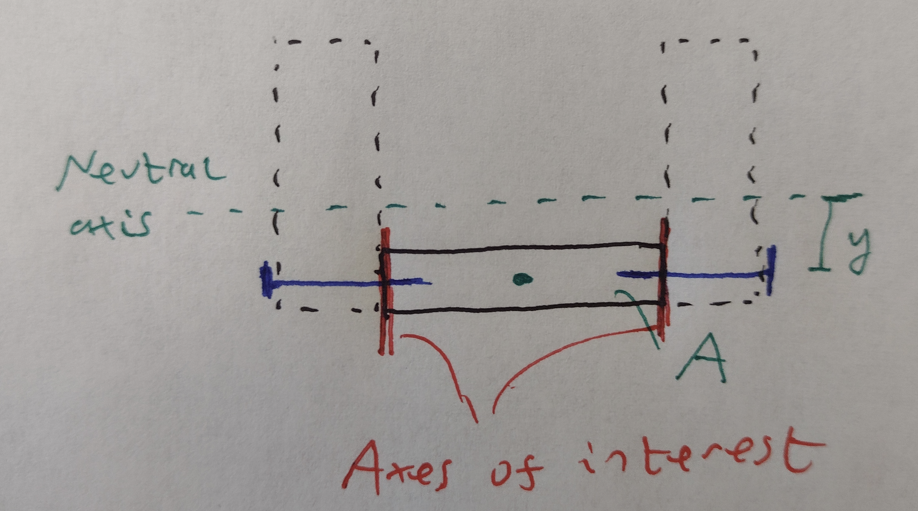 Neutral
axis
y
A
Axes of interest